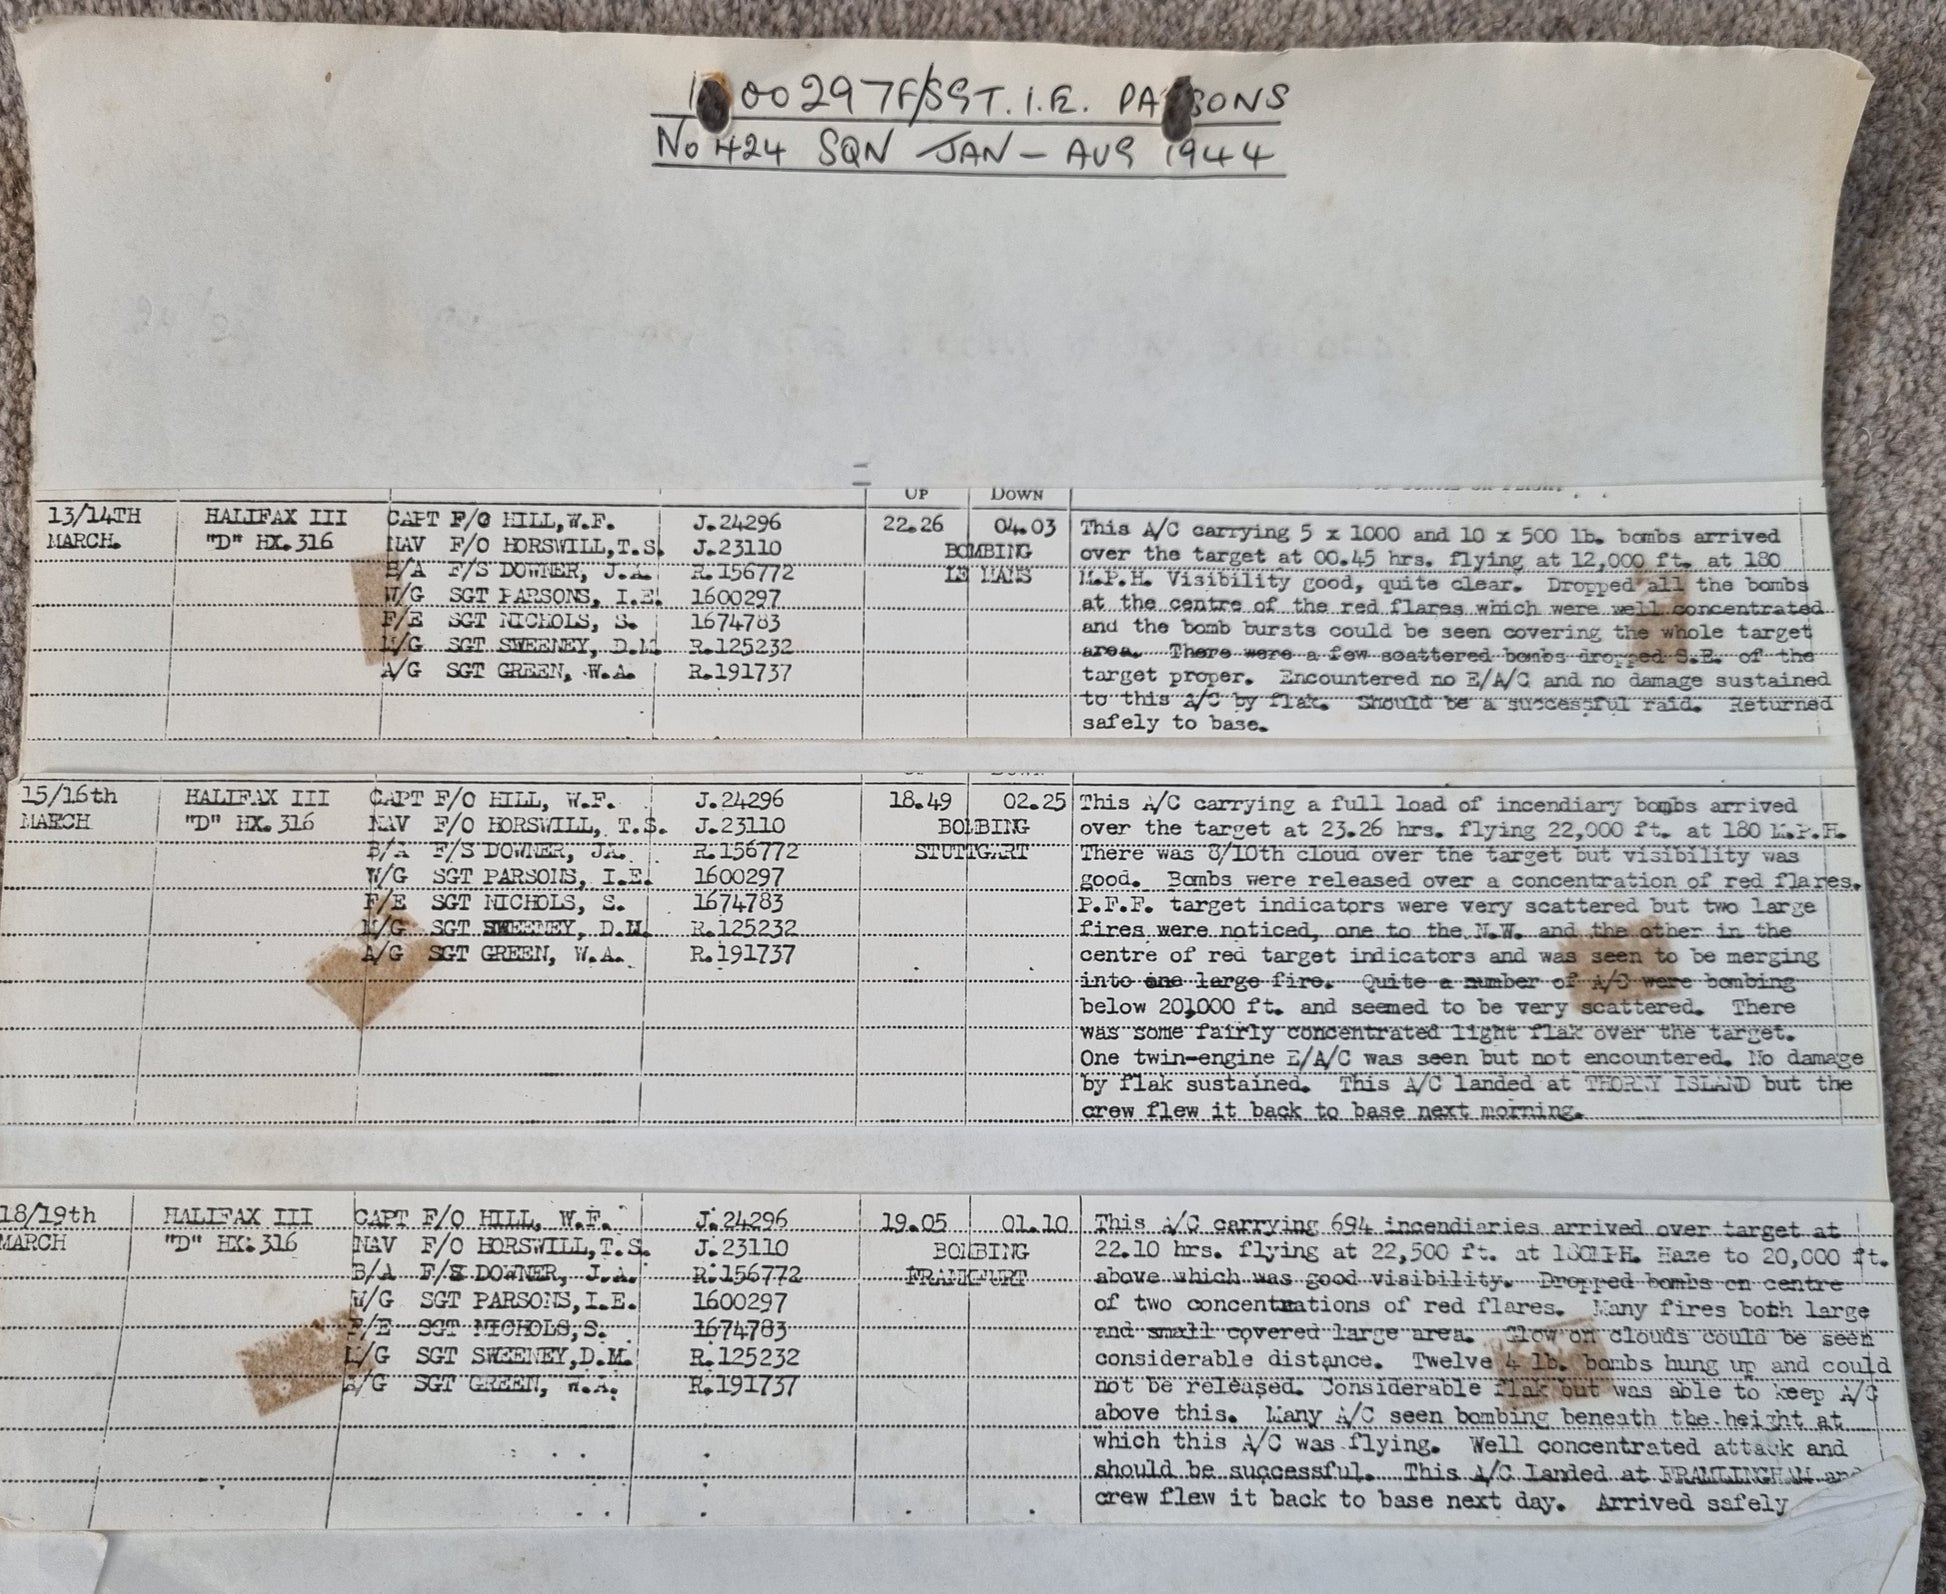 1 00297 F/SGT. I.E. PA SONS
No 424 SQN JAN - AUG 1944
UP DOWN
13/14TH HALIFAX III CAPT F/O HILL,W.F. J.24296 22.26 04.03 This A/C carrying 5 x 1000 and 10 x 500 lb. bombs arrived
MARCH. "D" HX.316 NAV F/O HORSWILL,T.S. J.23110 BOMBING over the target at 00.45 hrs. flying at 12,000 ft. at 180
B/A F/S DOWNER, J.A. R.156772 LE MANS M.P.H. Visibility good, quite clear. Dropped all the bombs
W/G SGT PARSONS, I.E. 1600297 at the centre of the red flares which were well concentrated
F/E SGT NICHOLS, S. 1674783 and the bomb bursts could be seen covering the whole target
M/G SGT SWEENEY, D.M. R.125232 area. There were a few scattered bombs dropped S.E. of the
A/G SGT GREEN, W.A. R.191737 target proper. Encountered no E/A/C and no damage sustained
to this A/C by flak. Should be a successful raid. Returned
safely to base.
15/16th HALIFAX III CAPT F/O HILL, W.F. J.24296 18.49 02.25 This A/C carrying a full load of incendiary bombs arrived
MARCH "D" HX.316 NAV F/O HORSWILL, T.S. J.23110 BOMBING over the target at 23.26 hrs. flying 22,000 ft. at 180 M.P.H.
B/A F/S DOWNER, JA. R.156772 STUTTGART There was 8/10th cloud over the target but visibility was
W/G SGT PARSONS, I.E. 1600297 good. Bombs were released over a concentration of red flares.
F/E SGT NICHOLS, S. 1674783 P.F.F. target indicators were very scattered but two large
M/G SGT SWEENEY, D.M. R.125232 fires were noticed, one to the N.W. and the other in the
A/G SGT GREEN, W.A. R.191737 centre of red target indicators and was seen to be merging
into one large fire. Quite a number of A/C were bombing
below 20,000 ft. and seemed to be very scattered. There
was some fairly concentrated light flak over the target.
One twin-engine E/A/C was seen but not encountered. No damage
by flak sustained. This A/C landed at THORNY ISLAND but the
crew flew it back to base next morning.
18/19th HALIFAX III CAPT F/O HILL, W.F. J.24296 19.05 01.10 This A/C carrying 694 incendiaries arrived over target at
MARCH "D" HX.316 NAV F/O HORSWILL,T.S. J.23110 BOMBING 22.10 hrs. flying at 22,500 ft. at 180MPH. Haze to 20,000 ft.
B/A F/S DOWNER, J.A. R.156772 FRANKFURT above which was good visibility. Dropped bombs on centre
W/G SGT PARSONS,I.E. 1600297 of two concentrations of red flares. Many fires both large
F/E SGT NICHOLS,S. 1674783 and small covered large area. Glow on clouds could be seen
M/G SGT SWEENEY,D.M. R.125232 considerable distance. Twelve 4 lb. bombs hung up and could
A/G SGT GREEN, W.A. R.191737 not be released. Considerable flak but was able to keep A/C
above this. Many A/C seen bombing beneath the height at
which this A/C was flying. Well concentrated attack and
should be successful. This A/C landed at FRAMLINGHAM and
crew flew it back to base next day. Arrived safely